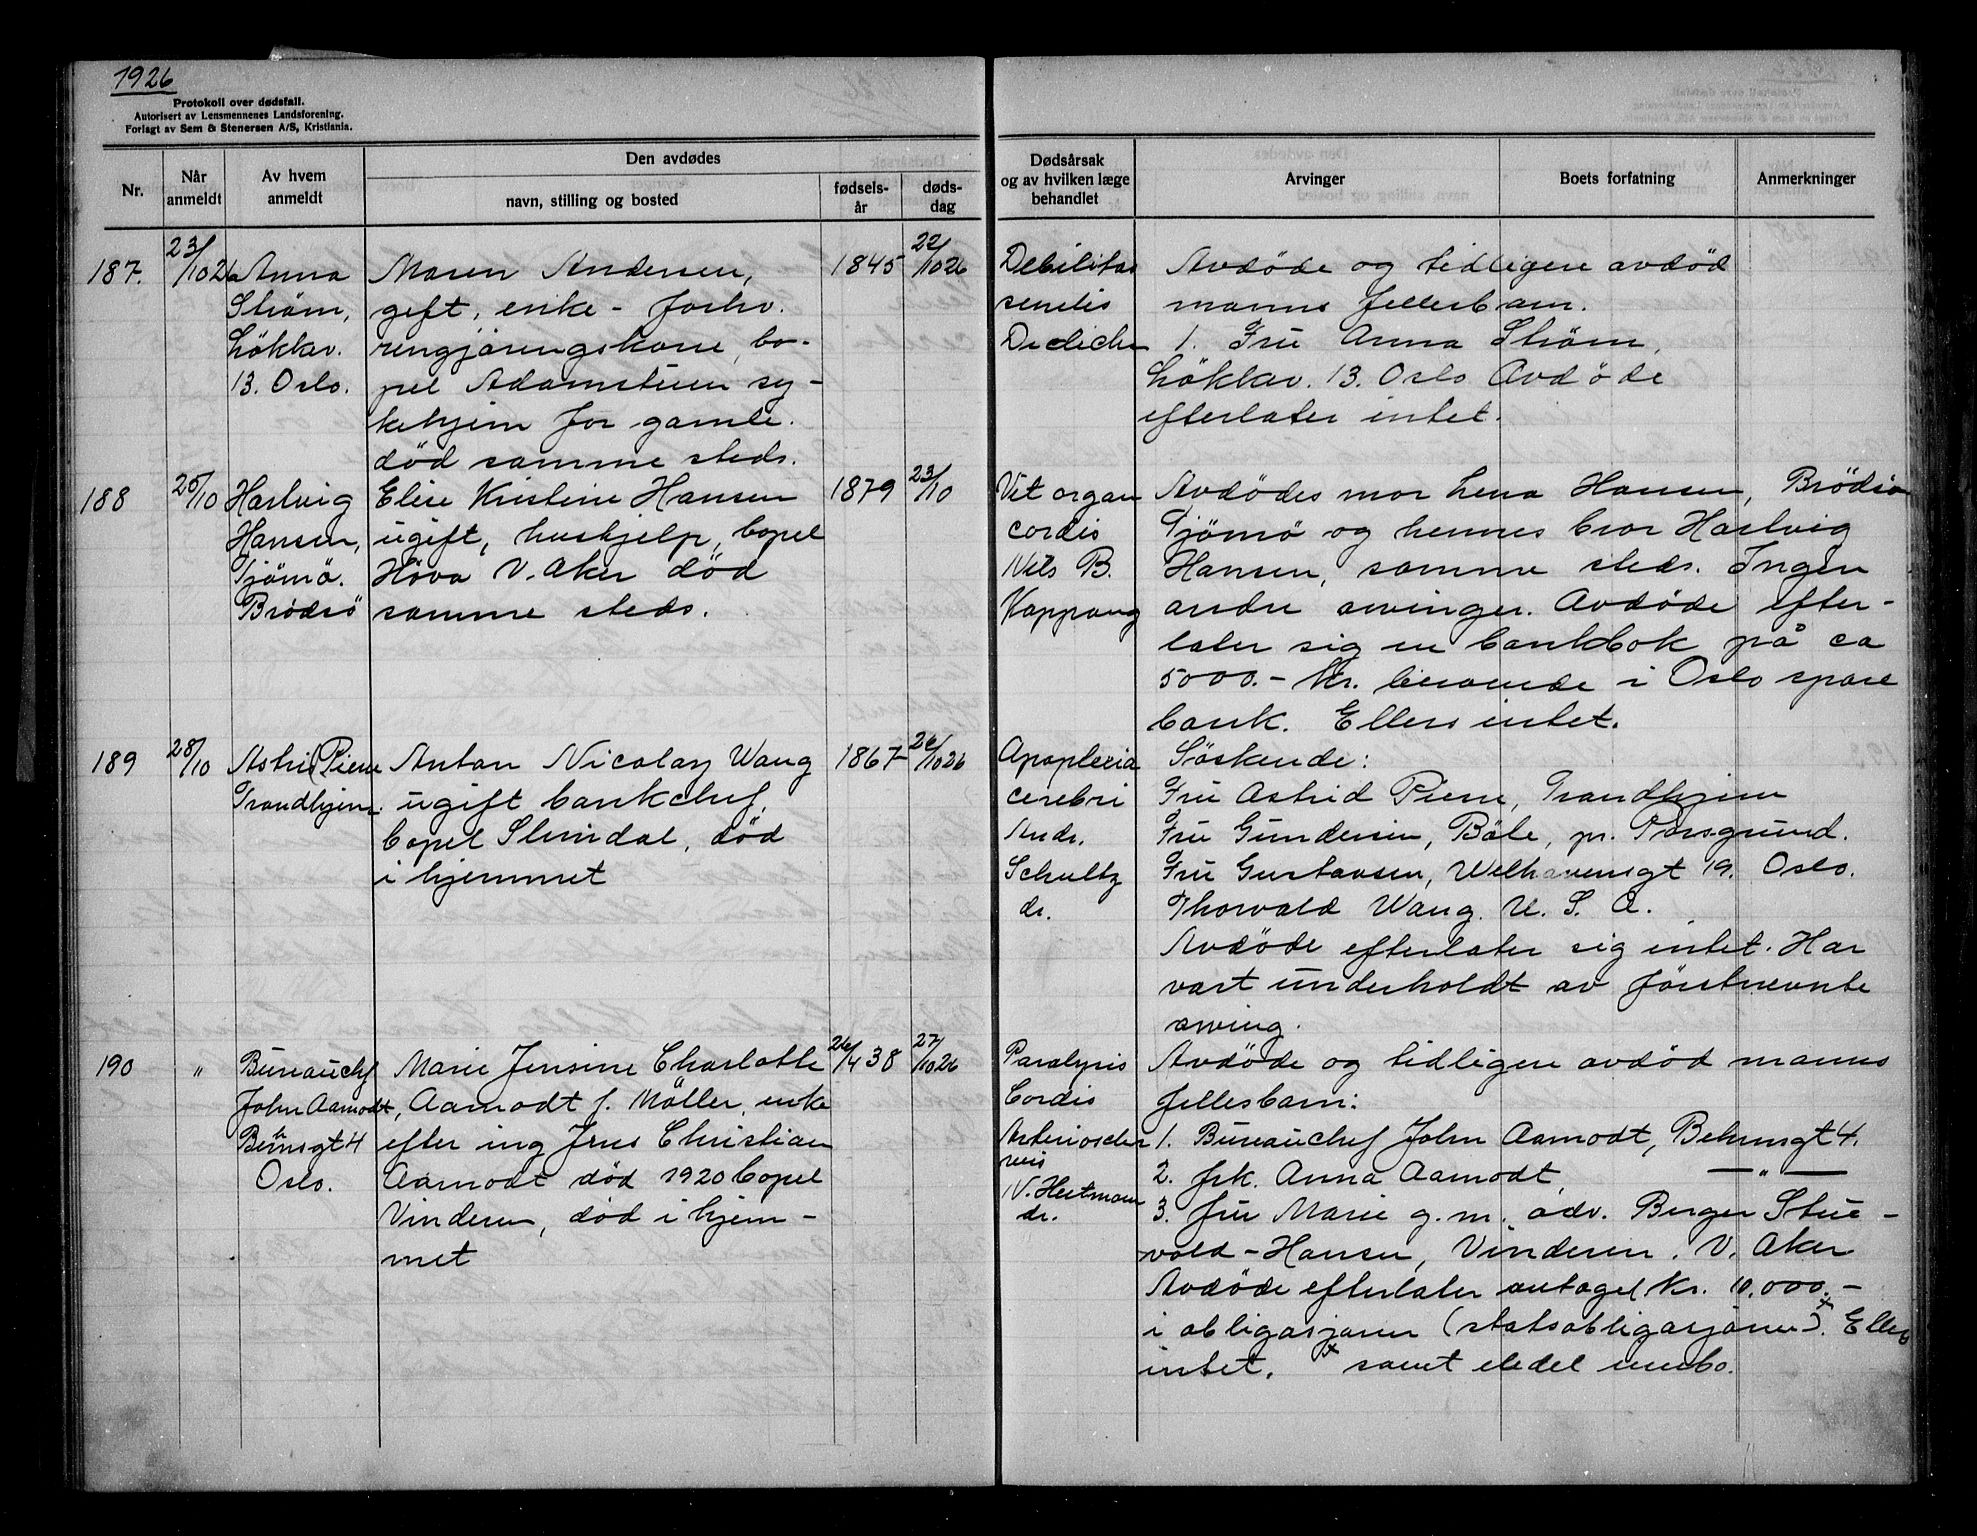 1926
Protokoll over dødsfall.
Autorisert av Lensmennenes Landsforening.
Forlagt av Sem & Stenersen A/S, Kristiania.
Nr.
Når anmeldt
Av hvem anmeldt
Den avdødes
navn, stilling og bosted
fødsels-år
døds-dag
Dødsårsak og av hvilken læge behandlet
Arvinger
Boets forfatning
Anmerkninger
187.
23/10 26
Anna
Strøm,
Løkkev.
13. Oslo.
Maren Andersen,
gift, enke - forhv.
rengjøringskone, bo-
pel Adamstuen sy-
kehjem for gamle.
død samme steds.
1845
22/10 26
Debilitas
senilis
Dedichen
Avdøde og tidligere avdød
manns fellesbarn.
1. Fru Anna Strøm,
Løkkev. 13. Oslo Avdøde
efterlater intet.
188
25/10
Hartvig
Hansen,
Tjømø.
Brødsø
Elise Kristine Hansen
ugift, hushjelp, bopel
Høva V. Aker død
samme steds.
1879
23/10
Vit organ
cordis
Nils B.
Koppang
Avdødes mor Lena Hansen, Brødsø
Tjømø og hennes bror Hartvig
Hansen, samme steds. Ingen
andre arvinger. Avdøde efter-
later sig en bankbok på ca
5000.- kr. beroende i Oslo spare
bank. Ellers intet.
189
28/10
Astrid Piene
Trondhjem.
Anton Nicolay Wang
ugift bankchef,
bopel Slemdal, død
i hjemmet
1867
26/10 26
Apoplexia
cerebri
Andr.
Schultz
dr.
Søskende:
Fru Astrid Piene, Trondhjem
Fru Gundersen, Bøle, pr. Porsgrund.
Fru Gustavsen, Welhavensgt 19. Oslo.
Thorvald Wang. U. S. A.
Avdøde efterlater sig intet. Har
vært underholdt av førstnevnte
arving.
190
"
Bureauchef
John Aamodt,
Behrnsgt 4
Oslo.
Marie Jensine Charlotte
Aamodt f. Møller, enke
efter ing Jens Christian
Aamodt død 1920 bopel
Vinderen, død i hjem-
met
26/4 38
27/10 26
Paralysis
Cordis
Arteriosclerosis
N. Heitmann
dr.
Avdøde og tidligere avdød manns
fellesbarn:
1. Bureauchef John Aamodt, Behrnsgt 4.
2. frk. Anna Aamodt, — " —
3. fru Marie g. m. adv. Berger Stue-
vold-Hansen, Vinderen. V. Aker
Avdøde efterlater antagel. kr. 10,000.-
i obligasjoner (statsobligasjoner)x. Ellers
intet. x samt en del innbo.